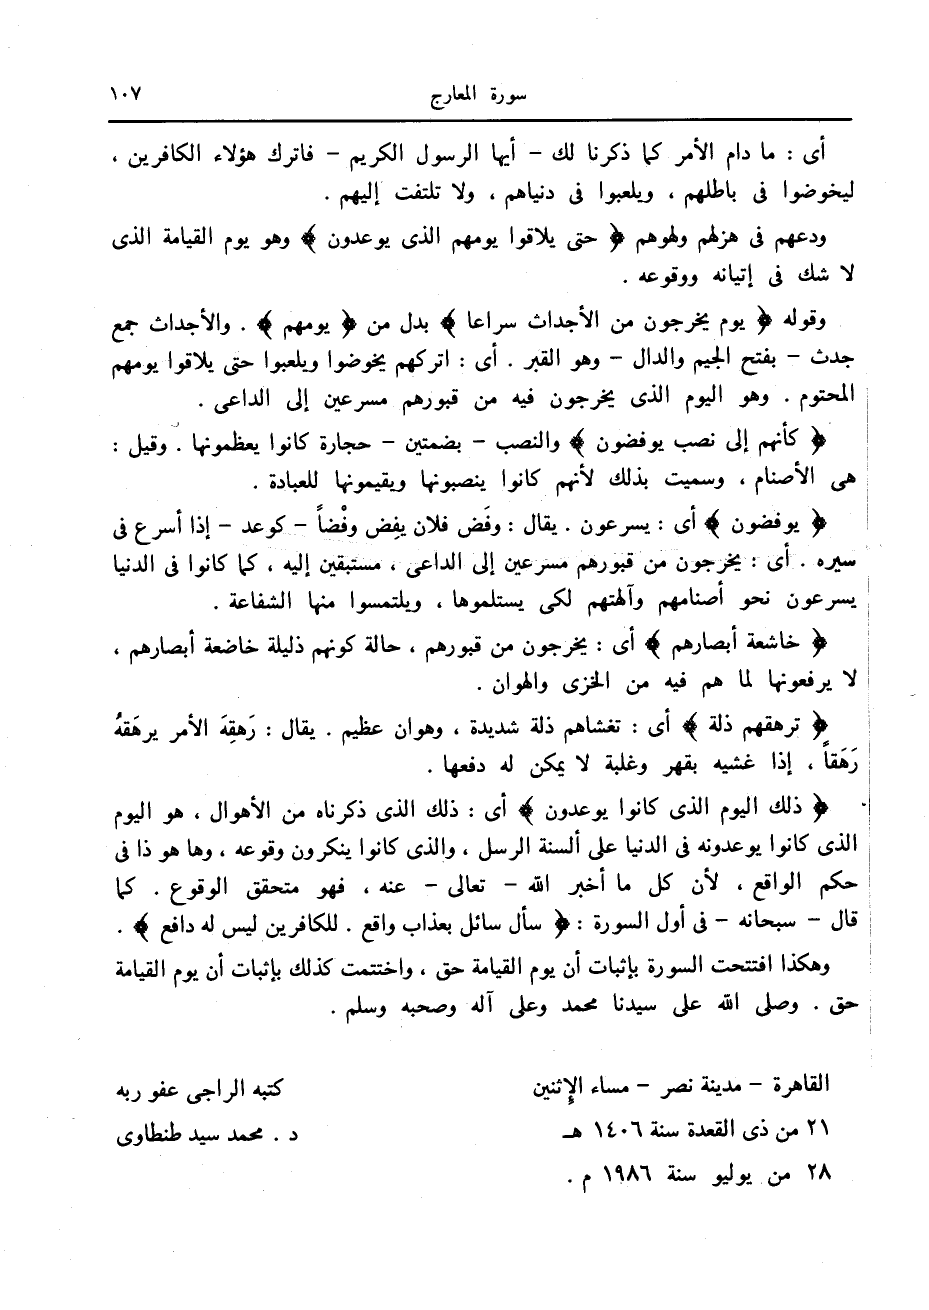 سورة المعارج ١٠٧
أى : ما دام الأمر كما ذكرنا لك – أيها الرسول الكريم – فاترك هؤلاء الكافرين ،
ليخوضوا فى باطلهم ، ويلعبوا فى دنياهم ، ولا تلتفت إليهم .
ودعهم فى هزلهم ولهوهم ﴿ حتى يلاقوا يومهم الذى يوعدون ﴾ وهو يوم القيامة الذى
لا شك فى إتيانه ووقوعه .
وقوله ﴿ يوم يخرجون من الأجداث سراعا ﴾ بدل من ﴿ يومهم ﴾ . والأجداث جمع
جدث – بفتح الجيم والدال – وهو القبر . أى : اتركهم يخوضوا ويلعبوا حتى يلاقوا يومهم
المحتوم . وهو اليوم الذى يخرجون فيه من قبورهم مسرعين إلى الداعى .
﴿ كأنهم إلى نصب يوفضون ﴾ والنصب – بضمتين – حجارة كانوا يعظمونها . وقيل :
هى الأصنام ، وسميت بذلك لأنهم كانوا ينصبونها ويقيمونها للعبادة .
﴿ يوفضون ﴾ أى : يسرعون . يقال : وفَض فلان يفِض وفْضاً – كوعد – إذا أسرع فى
سيره . أى : يخرجون من قبورهم مسرعين إلى الداعى ، مستبقين إليه ، كما كانوا فى الدنيا
يسرعون نحو أصنامهم وآلهتهم لكى يستلموها ، ويلتمسوا منها الشفاعة .
﴿ خاشعة أبصارهم ﴾ أى : يخرجون من قبورهم ، حالة كونهم ذليلة خاضعة أبصارهم ،
لا يرفعونها لما هم فيه من الخزى والهوان .
﴿ ترهقهم ذلة ﴾ أى : تغشاهم ذلة شديدة ، وهوان عظيم . يقال : رَهِقهَ الأمر يرهَقهُ
رَهَقاً ، إذا غشيه بقهر وغلبة لا يمكن له دفعها .
﴿ ذلك اليوم الذى كانوا يوعدون ﴾ أى : ذلك الذى ذكرناه من الأهوال ، هو اليوم
الذى كانوا يوعدونه فى الدنيا على ألسنة الرسل ، والذى كانوا ينكرون وقوعه ، وها هو ذا فى
حكم الواقع ، لأن كل ما أخبر الله – تعالى – عنه ، فهو متحقق الوقوع . كما
قال – سبحانه – فى أول السورة : ﴿ سأل سائل بعذاب واقع . للكافرين ليس له دافع ﴾ .
وهكذا افتتحت السورة بإثبات أن يوم القيامة حق ، واختتمت كذلك بإثبات أن يوم القيامة
حق . وصلى الله على سيدنا محمد وعلى آله وصحبه وسلم .
القاهرة – مدينة نصر – مساء الإثنين كتبه الراجى عفو ربه
٢١ من ذى القعدة سنة ١٤٠٦ هـ د . محمد سيد طنطاوى
٢٨ من يوليو سنة ١٩٨٦ م .